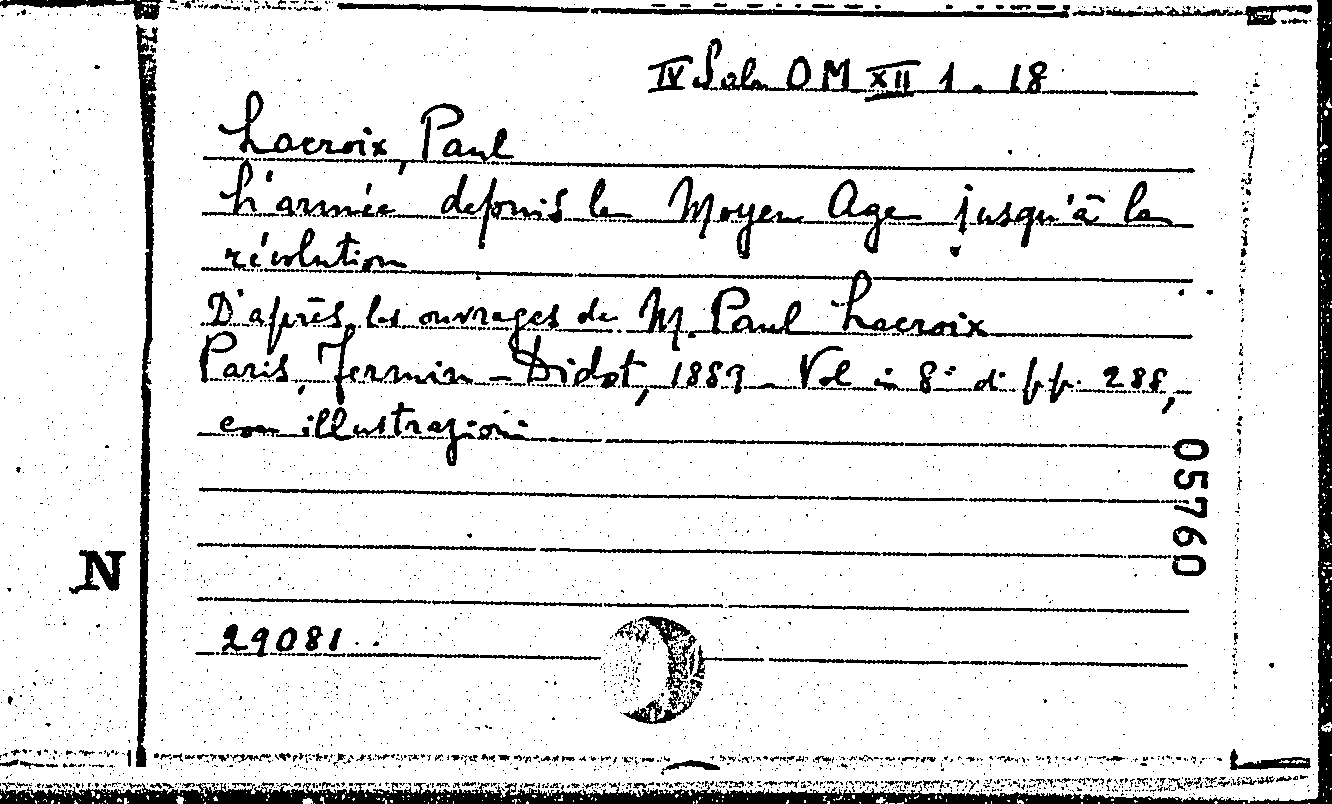 IV Sala OM XII 1. 18
Lacroix, Paul
L'armée depuis le Moyen Age jusqu'à la
révolution
D'après les ouvrages de M. Paul Lacroix
Paris, Fermin-Didot, 1889 - Vol in 8° di pp. 288,
con illustrazioni
05760
N
29081